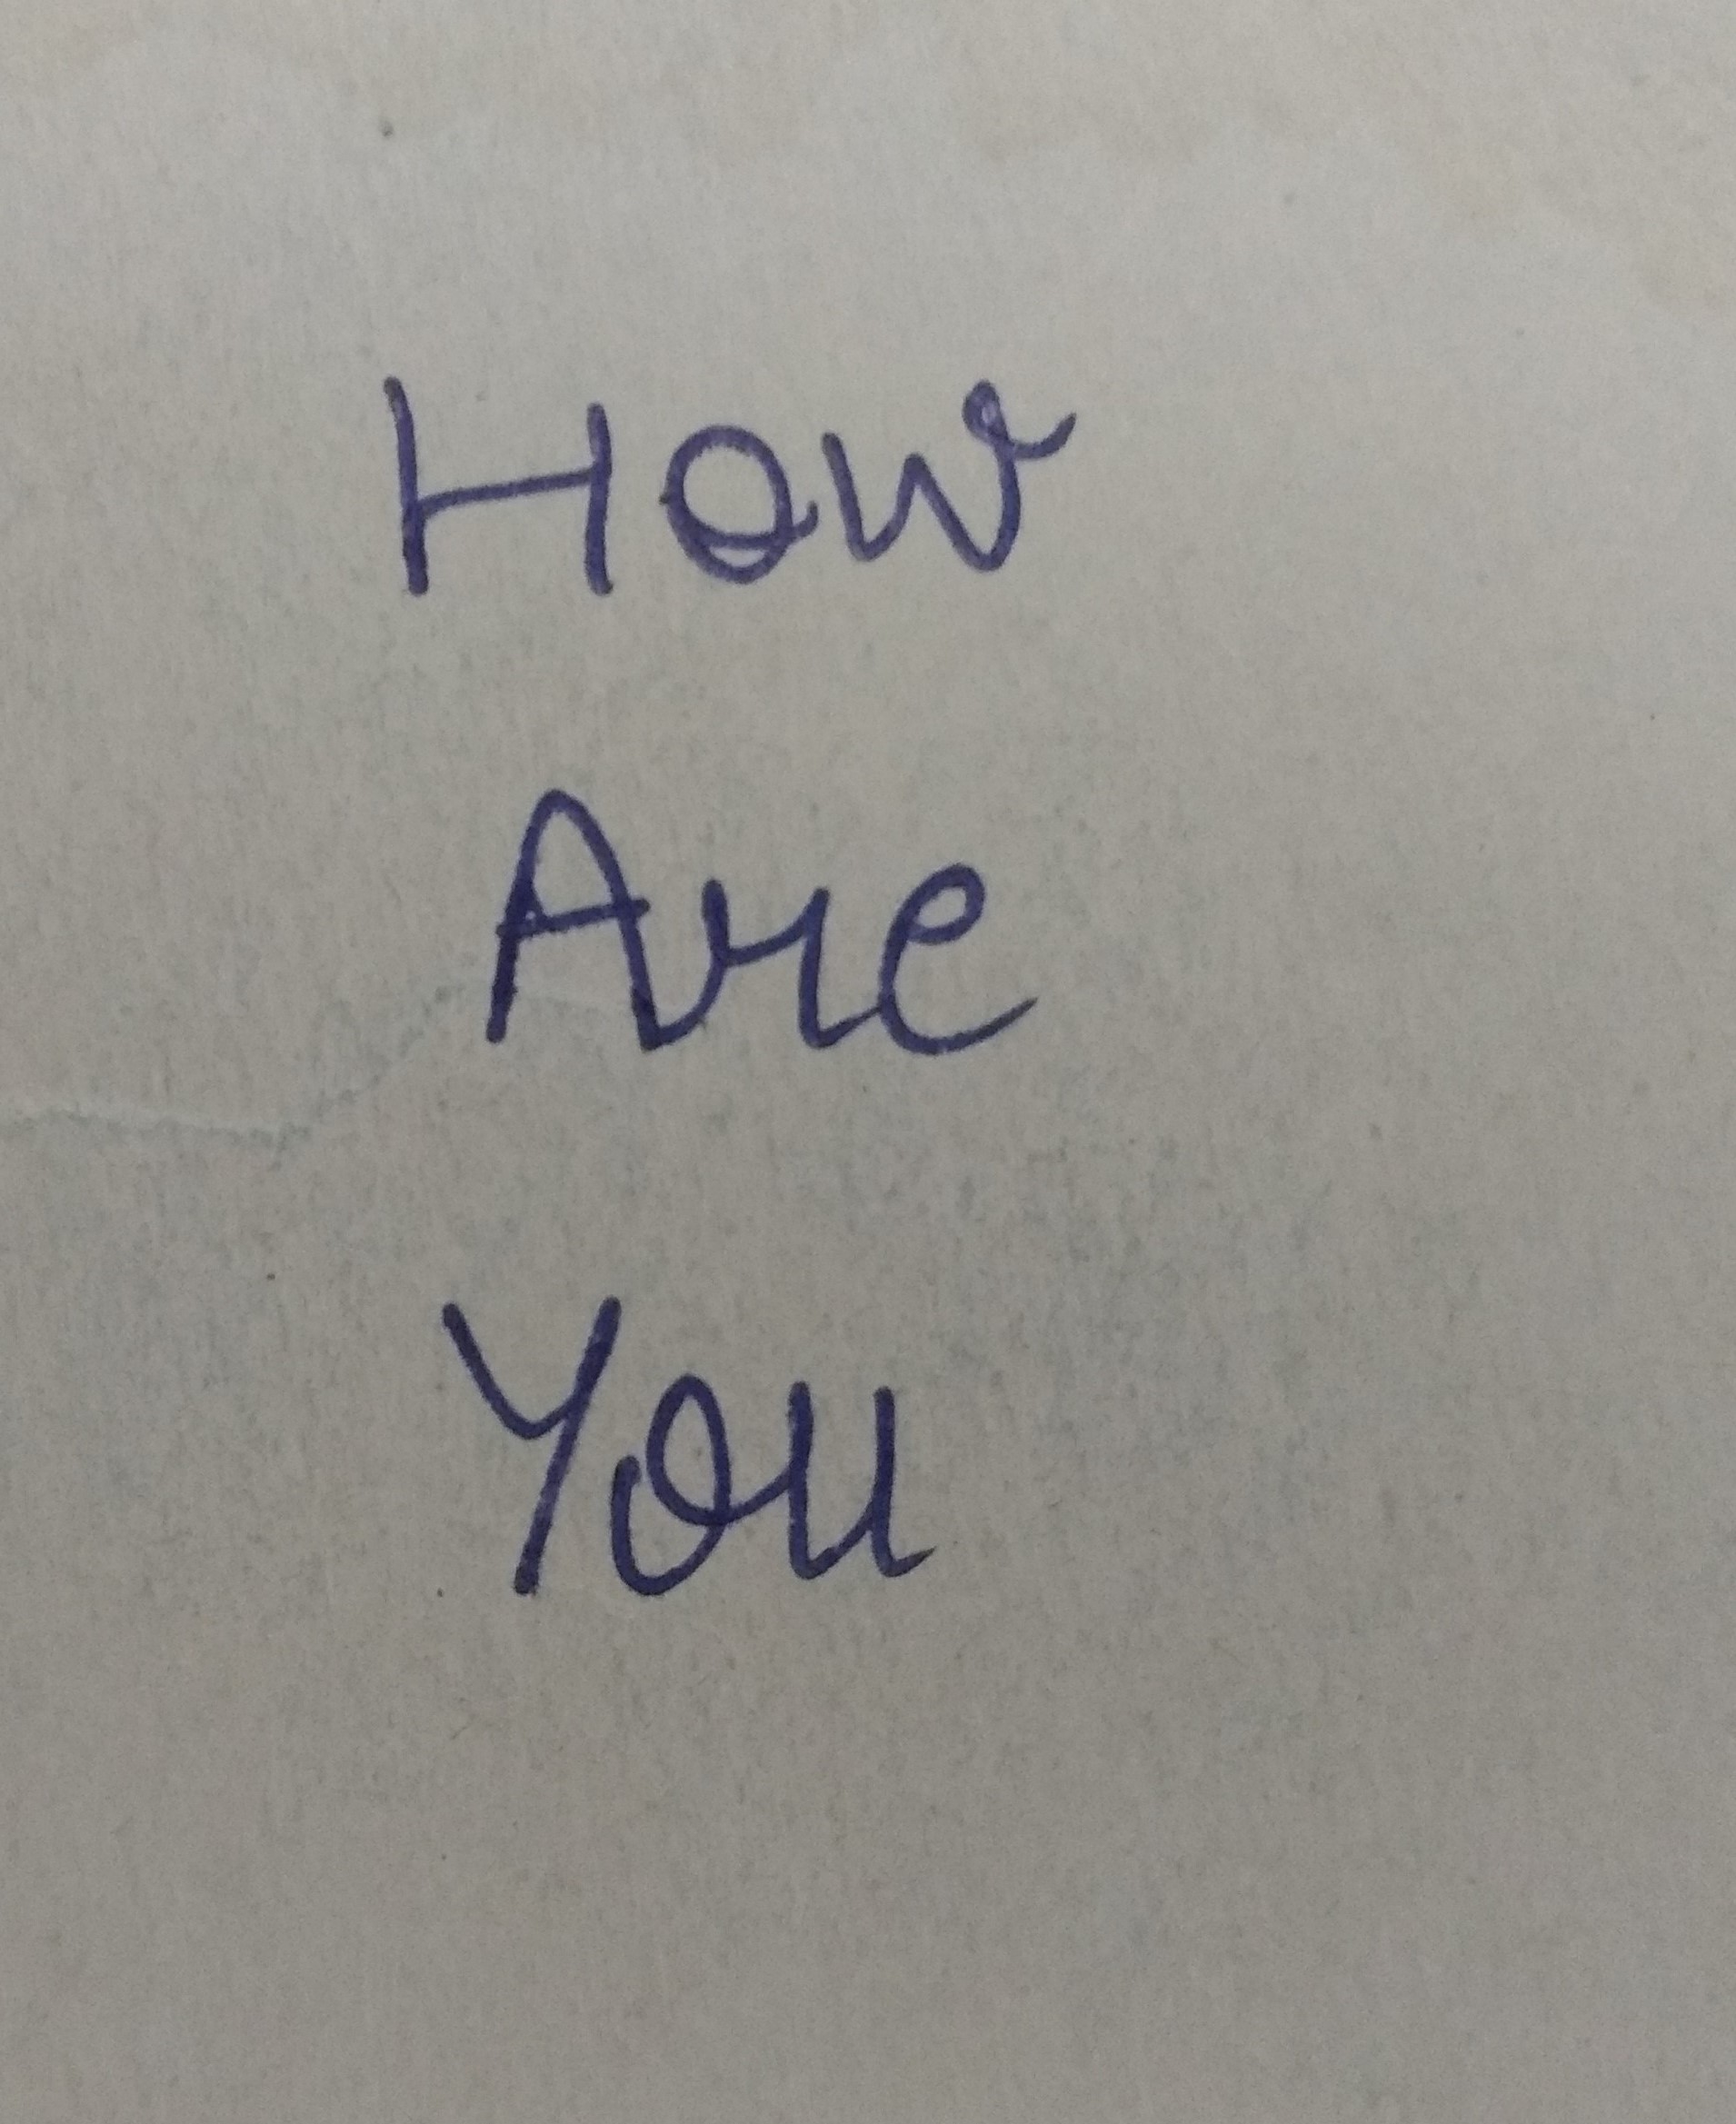 How
Are
You